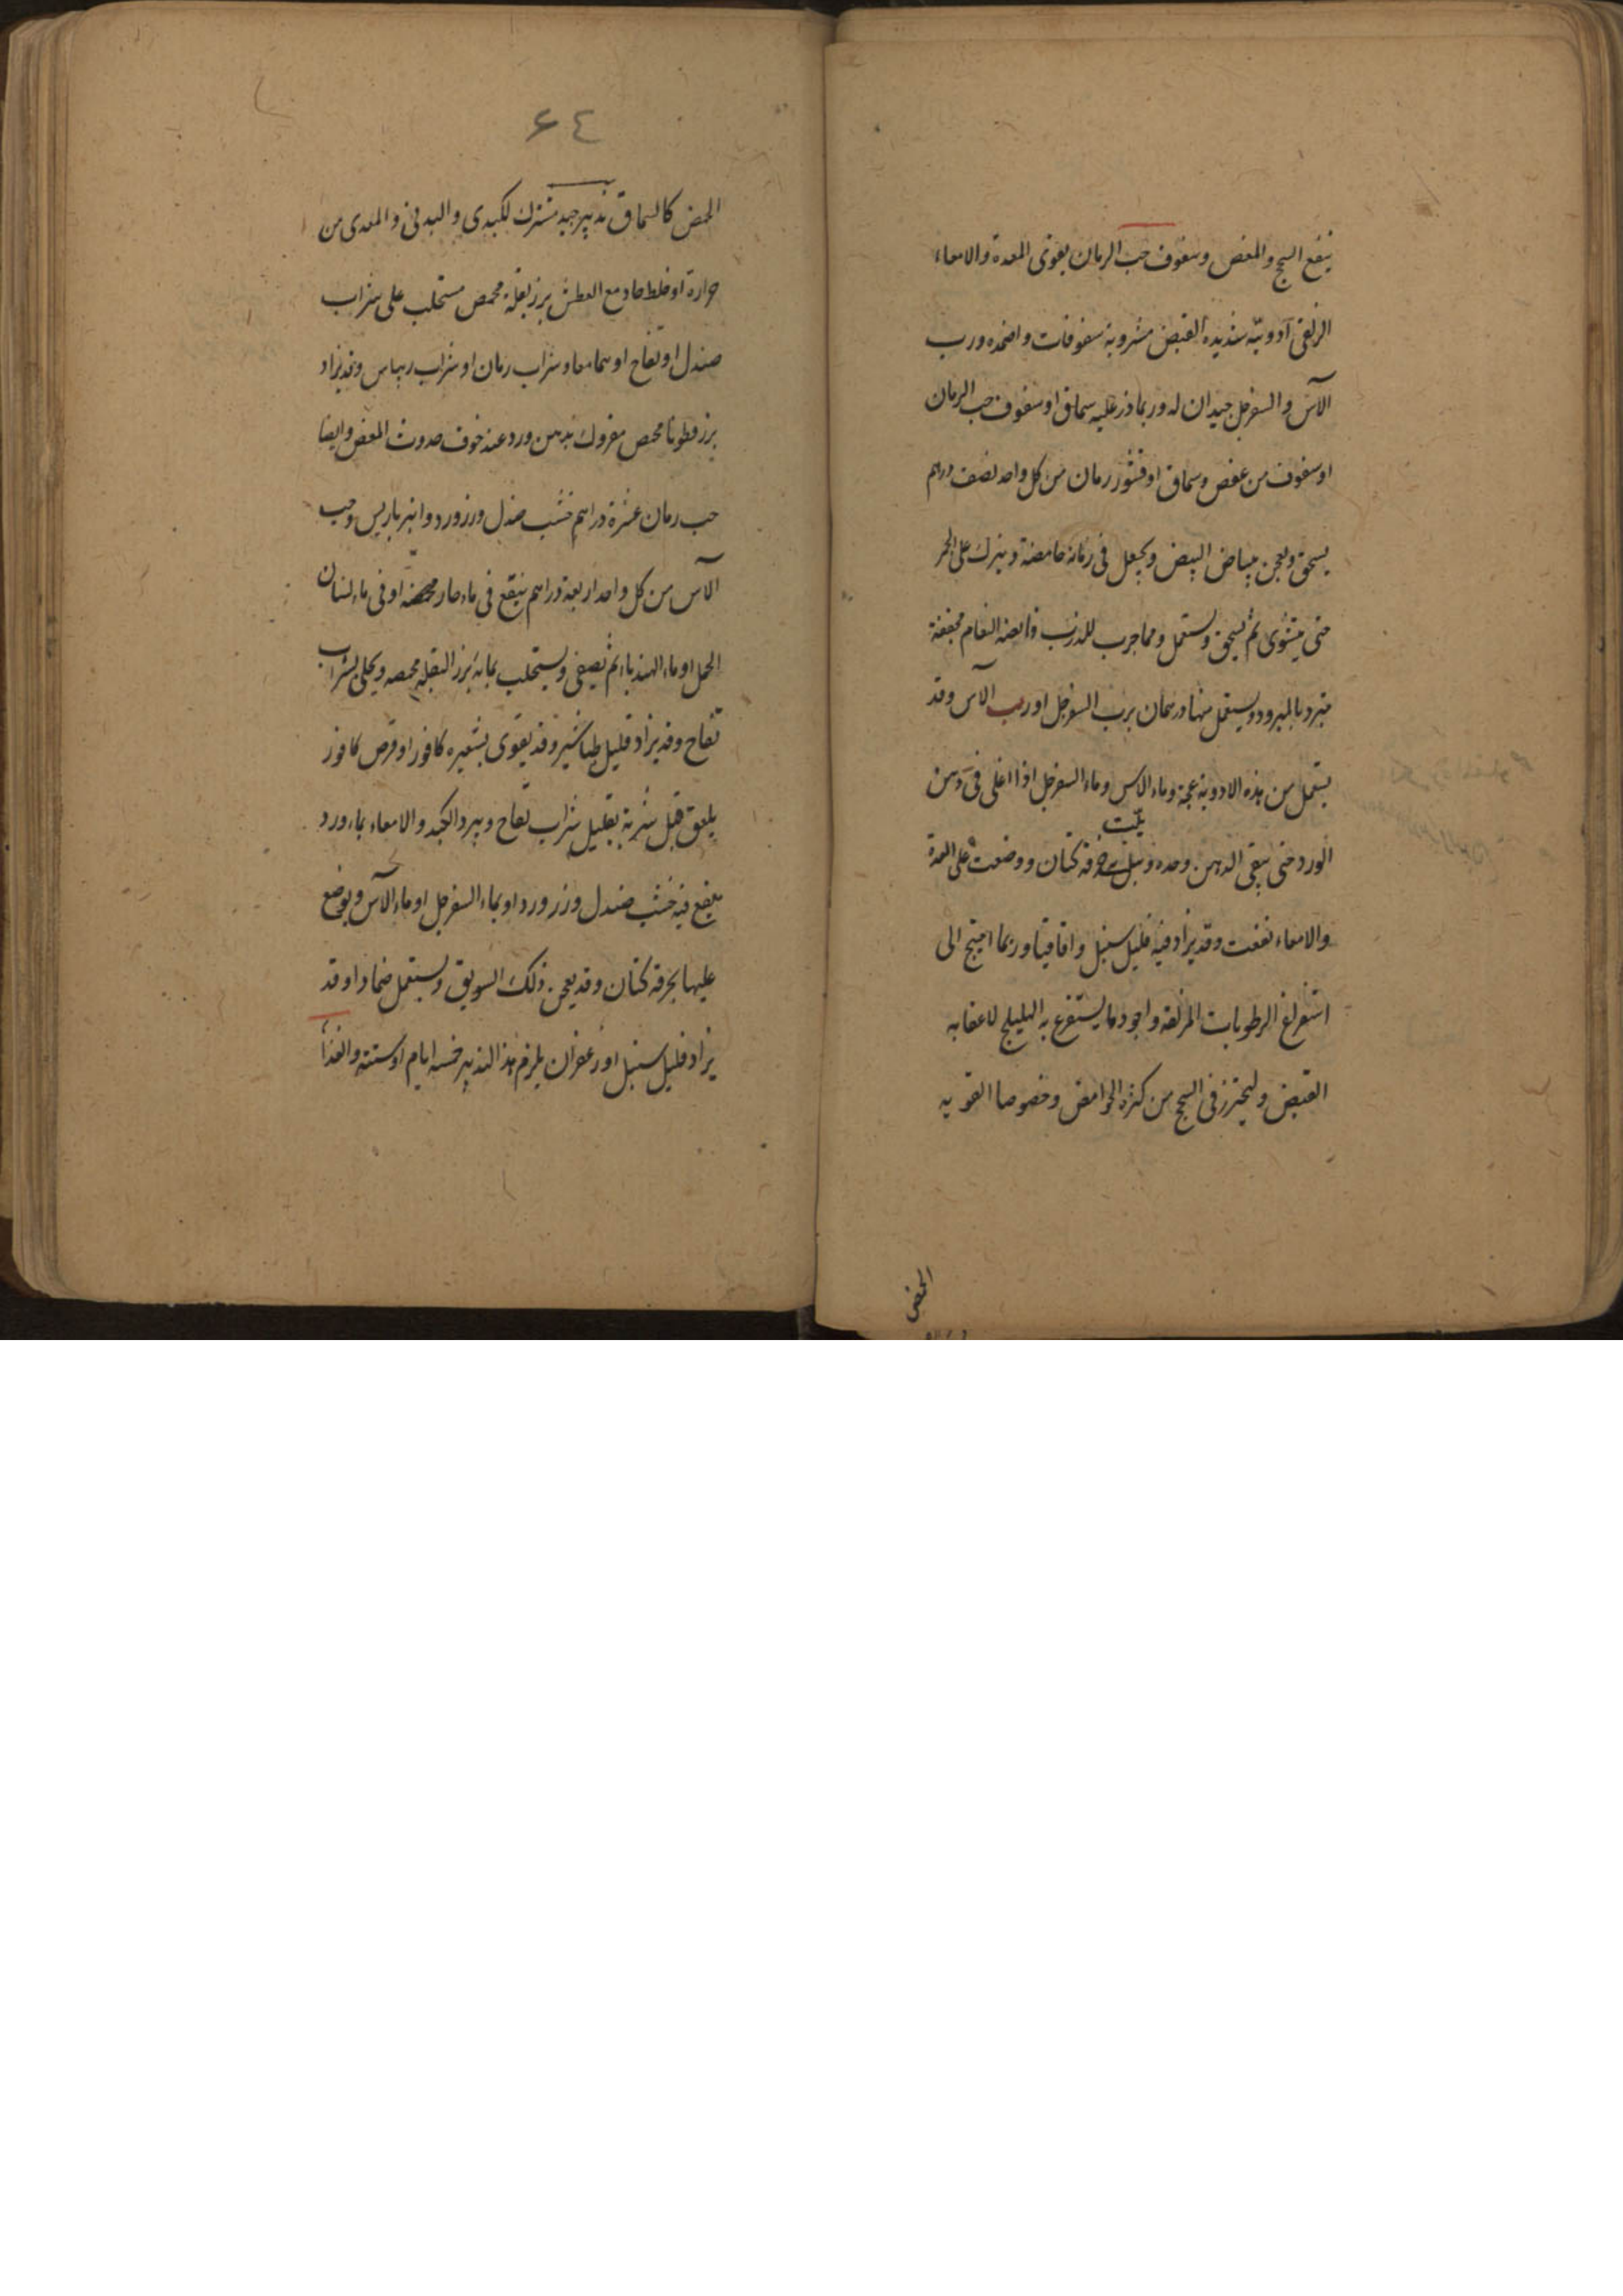 ينفع السحج والمغص وسفوف حب الرمان يقوى المعدة والامعاء
الزلقى ادوية شديدة القبض مشروبة سفوفات واضمده ورب
الآس والسفرجل جيدان له وربما ذر عليه سماق او سفوف حب الرمان
او سفوف من عفص وسماق او قشور رمان من كل واحد نصف درهم
يسحق ويعجن ببياض البيض ويجعل فى رمانة حامضة ويترك على الجمر
حتى يشوى ثم يسحق ويستعمل ومما جرب للذرب قانصة النعام مجففة
تبرد بالمبرد ويستعمل منها درهمان برب السفرجل او رب الآس وقد
يستعمل من هذه الادوية عجة وماء الاس وماء السفرجل اذا اغلى فى دهن
الورد حتى يبقى الدهن وحده وبلت خرقة كتان ووضعت على المعدة
والامعاء نفعت وقد يزاد فيه قليل سنبل واقاقيا وربما احتيج الى
استفراغ الرطوبات المزلقة واجود ما يستفرغ به الهليلج لاعقابه
القبض وليحترز فى السحج من كثرة الحوامض وخصوصا القويه
الحمض
٦٤
الحمض كالسماق تدبير جيد مشترك للكبدى والبدنى والمعدى من
حرارة او خلط حاد مع العطش بزر بقلة محمص مستحلب على شراب
صندل او تفاح او هما معا وشراب رمان او شراب ريباس وقد يزاد
بزر قطونا محمص مفروك بدهن ورد عند خوف حدوث المغص وايضا
حب رمان عشرة دراهم خشب صندل وزر ورد وانبرباريس وحب
الآس من كل واحد اربعة دراهم ينقع فى ماء حار او فى ماء لسان
الحمل او ماء الهندباء ثم يصفى ويستحلب بمائه بزر البقله محمصه ويحلى بشراب
تفاح وقد يزاد قليل طباشير وقد يقوى بشعيره كافور او قرص كافور
يلعق قبل شربه بقليل شراب تفاح ويبرد الكبد والامعاء بماء ورد
ينقع فيه خشب صندل وزر ورد او بماء السفرجل او ماء الآس ويوضع
عليها بخرقة كتان وقد يعجن ذلك السويق ويستعمل ضمادا وقد
يزاد قليل سنبل او زعفران يلزم هذا التدبير خمسه ايام او ستة والغذا